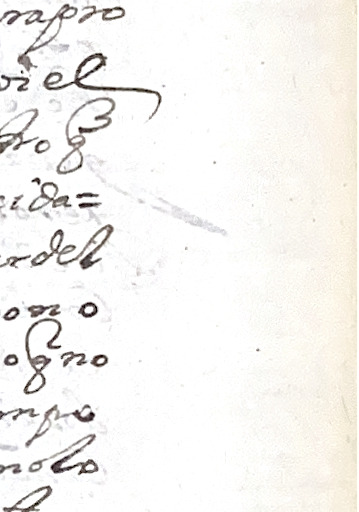 rapro
viel
tro q̃
cida=
rdel
ono
ogno
mpo
moto